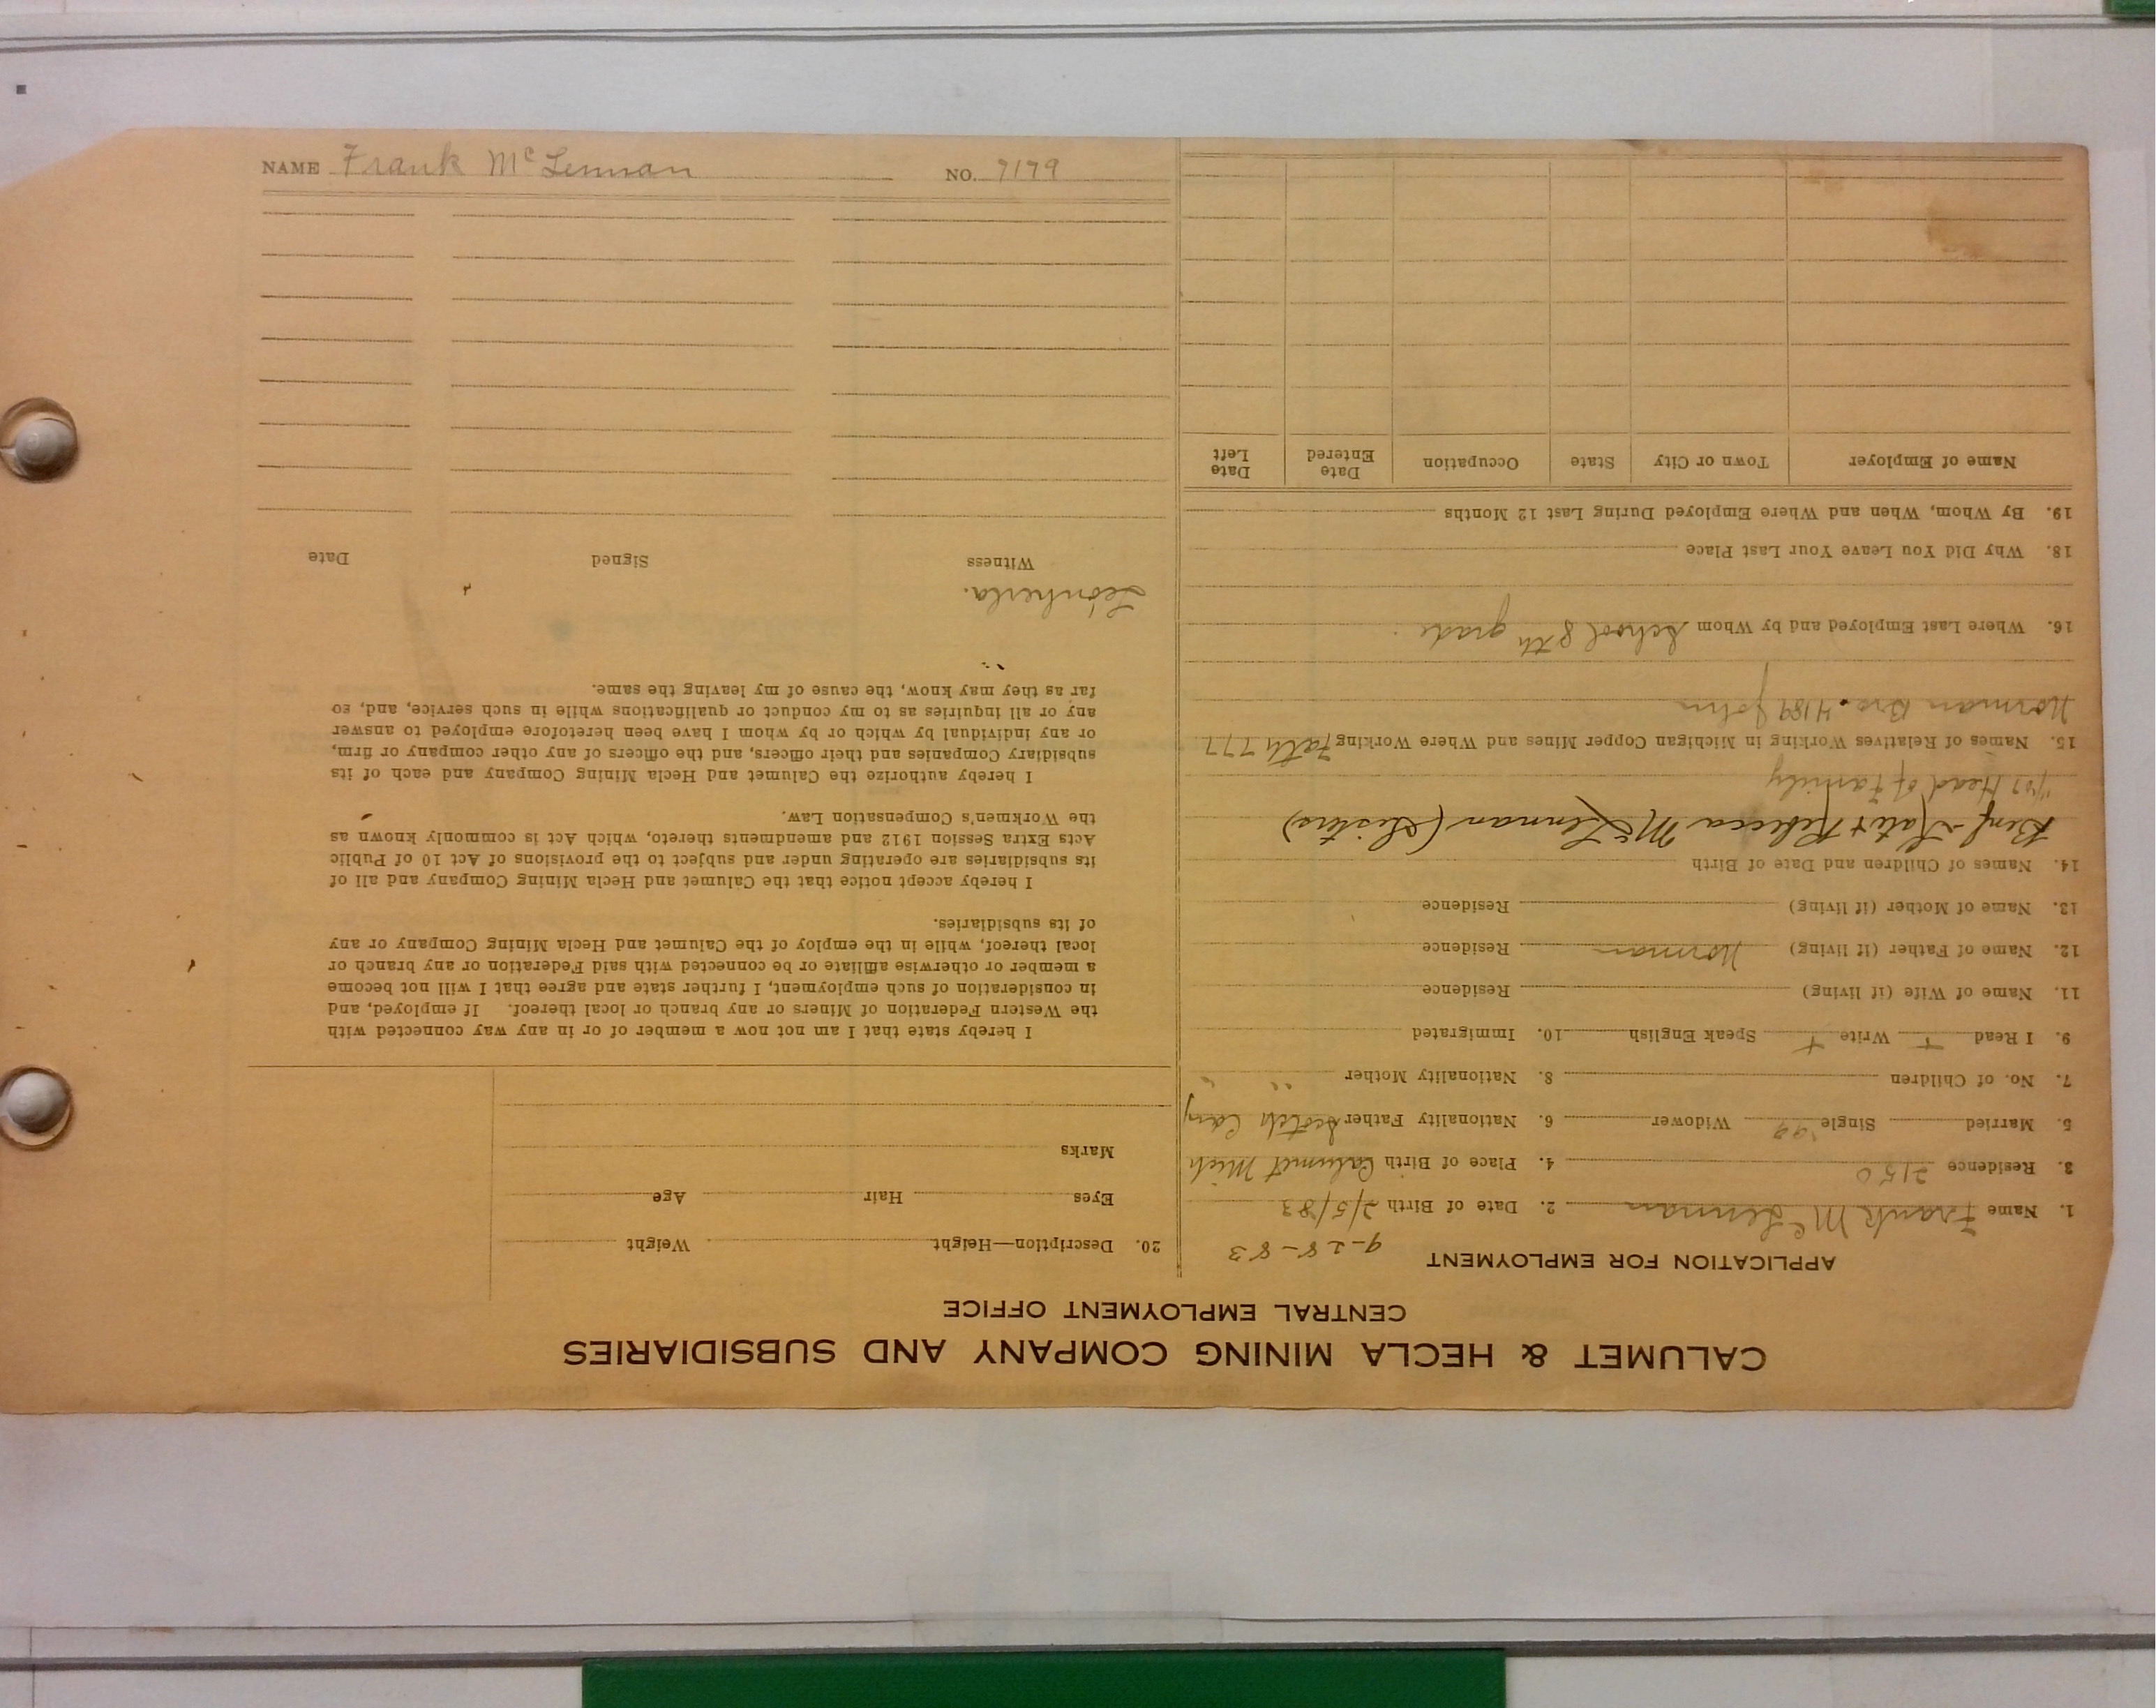 NAME Frank McLennan NO. 7179
CALUMET & HECLA MINING COMPANY AND SUBSIDIARIES
CENTRAL EMPLOYMENT OFFICE
APPLICATION FOR EMPLOYMENT
9-28-83
1. Name Frank McLennan 2. Date of Birth 2/5/83
3. Residence 2150 4. Place of Birth Calumet Mich
5. Married Single Widower 6. Nationality Father Scotch Can
7. No. of Children 8. Nationality Mother " "
9. I Read + Write + Speak English 10. Immigrated
11. Name of Wife (if living) Residence
12. Name of Father (if living) Norman Residence
13. Name of Mother (if living) Residence
14. Names of Children and Date of Birth
Benf-Kate + Rebecca McLennan (Sisters)
Head of Family
15. Names of Relatives Working in Michigan Copper Mines and Where Working Fath 777
Norman Bro. 4189 John
16. Where Last Employed and by Whom School 8th grade
18. Why Did You Leave Your Last Place
19. By Whom, When and Where Employed During Last 12 Months
Name of Employer Town or City State Occupation Date Entered Date Left
20. Description—Height Weight
Eyes Hair Age
Marks
I hereby state that I am not now a member of or in any way connected with
the Western Federation of Miners or any branch or local thereof. If employed, and
in consideration of such employment, I further state and agree that I will not become
a member or otherwise affiliate or be connected with said Federation or any branch or
local thereof, while in the employ of the Calumet and Hecla Mining Company or any
of its subsidiaries.
I hereby accept notice that the Calumet and Hecla Mining Company and all of
its subsidiaries are operating under and subject to the provisions of Act 10 of Public
Acts Extra Session 1912 and amendments thereto, which Act is commonly known as
the Workmen's Compensation Law.
I hereby authorize the Calumet and Hecla Mining Company and each of its
subsidiary Companies and their officers, and the officers of any other company or firm,
or any individual by which or by whom I have been heretofore employed to answer
any or all inquiries as to my conduct or qualifications while in such service, and, so
far as they may know, the cause of my leaving the same.
Witness Signed Date